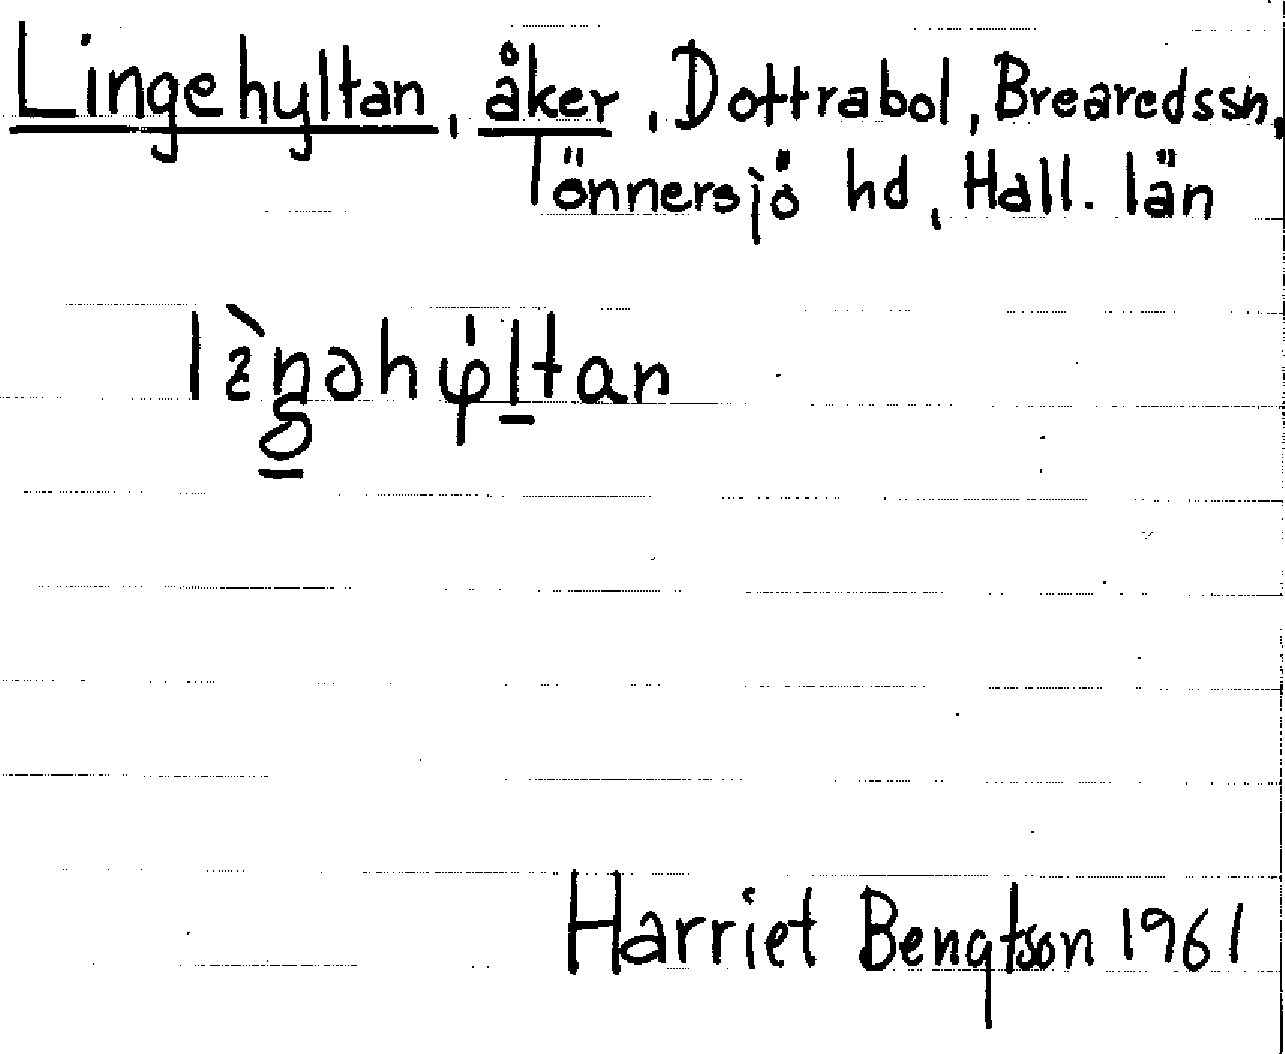 Lingehyltan, åker, Dottrabol, Brearedssn,
Tönnersjö hd, Hall. län
Harriet Bengtson 1961